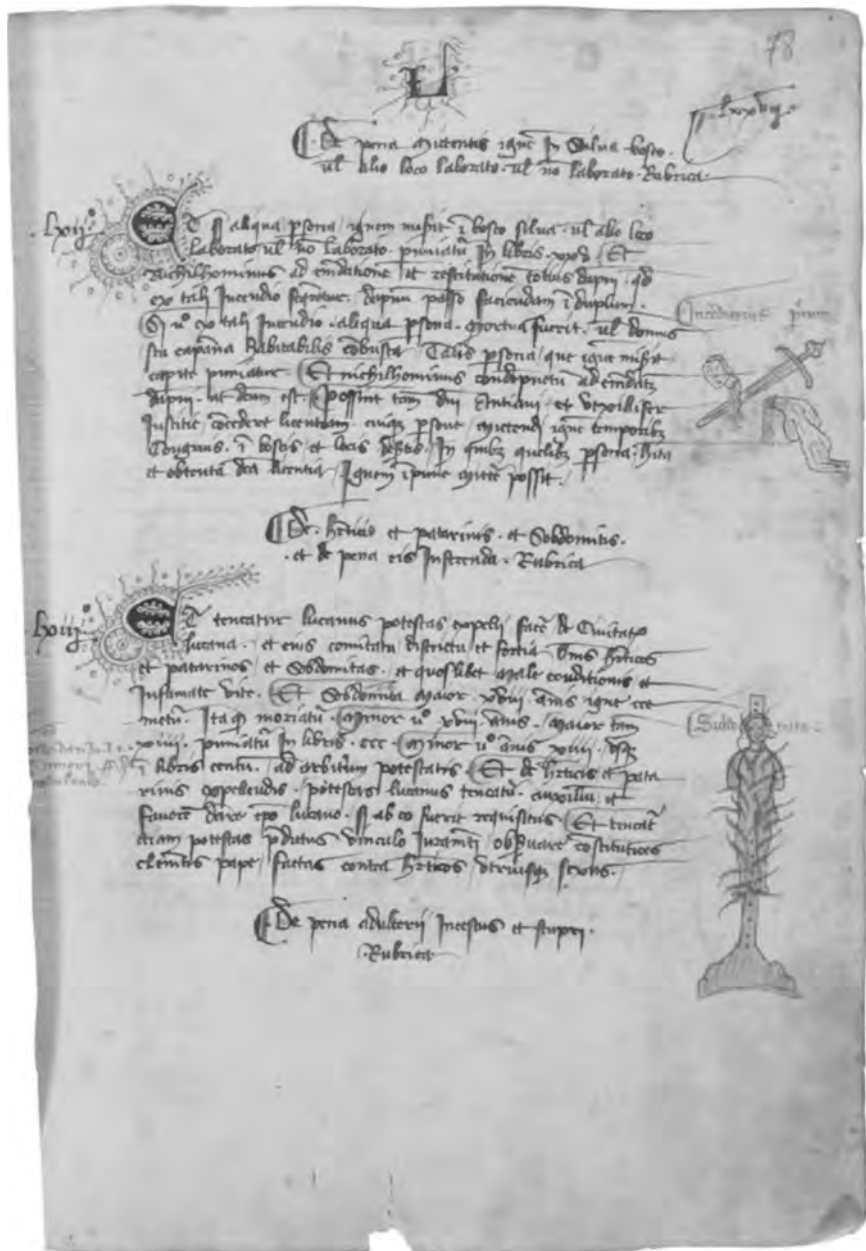 78
L
lxxviij
De pena mictentis igne In Silva bosco
vl alio loco laborato vl no laborato Rubrica
lxij°
ET si aliqua psona ignem misit i bosco silva vl alio loco
laborato vl no laborato puniatur In libris Et
nichilhominus ad emdatione et restitutione totius dapni qd
ex tali Incendio sequetur dapnum passo faciendam i duplum
Si u° ex tali Incendio aliqua psona mortua fuerit vl domus
seu capana habitabilis cobusta Talis psona que igne misit
capite puniatur Et nichilhominus condepnetur ad emdat
dapni ut dcm est Possint tam dni Antiani et vexillifer
Iustitie concedere licentiam cuiq psone mictendi igne temporibz
Congruis i boscis et locis In quibz quelibz psona hita
et obtenta dca licentia Ignem ipune micte possit
Incendiarius
De hrticis et patarinis et Sobdomitis
et de pena eis Inferenda Rubrica
lxiij°
ET teneatur lucanus potestas expelli face de Civitate
lucana et eius comitatu districtu et fortia omnis hrticos
et patarinos et Sobdomitas et quoslibet male conditionis et
Infamate vite Et Sobdomita maior xviij annis igne cre
metur Itaq moriatur Minor u° xviij annis maior tam
xiiij puniatur In libris ccc Minor u° annis xiiij
i libris centu ad arbitrium potestatis Et de hrticis et pata
rinis expellendis potestas lucanus teneatur auxilium et
favore dare epo lucano si ab eo fuerit requisitus Et teneat
etiam potestas pdictus vinculo Iuramti obsuare costitutioes
clemtis pape factas contra hrticos utriusq sexus
De pena adulterii Incestus et stupri
Rubrica